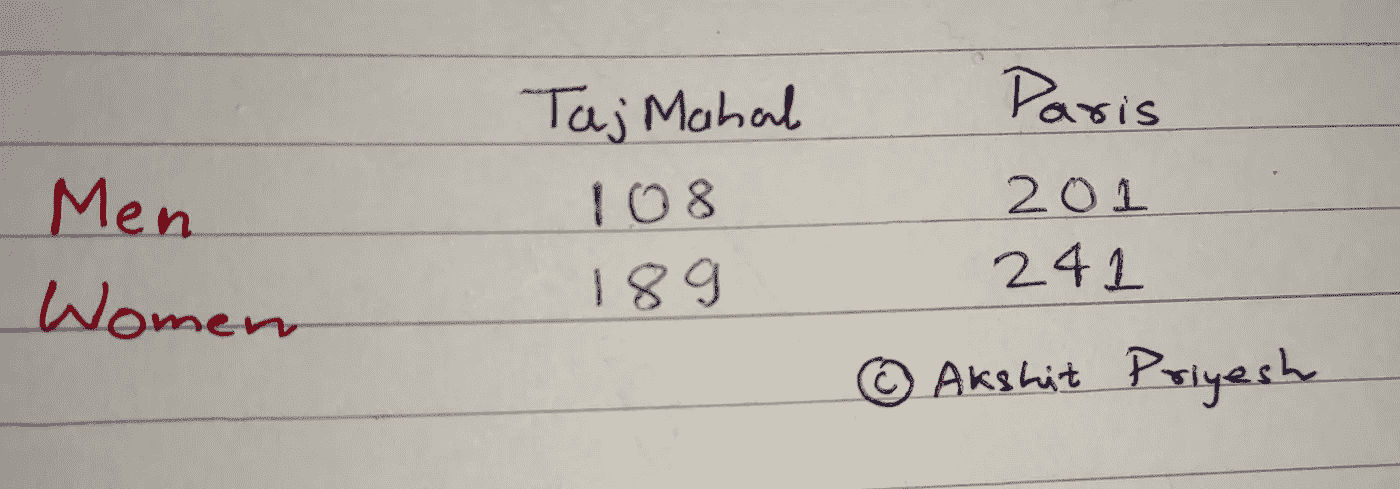 Taj Mahal Paris
Men 108 201
Women 189 241
© Akshit Priyesh